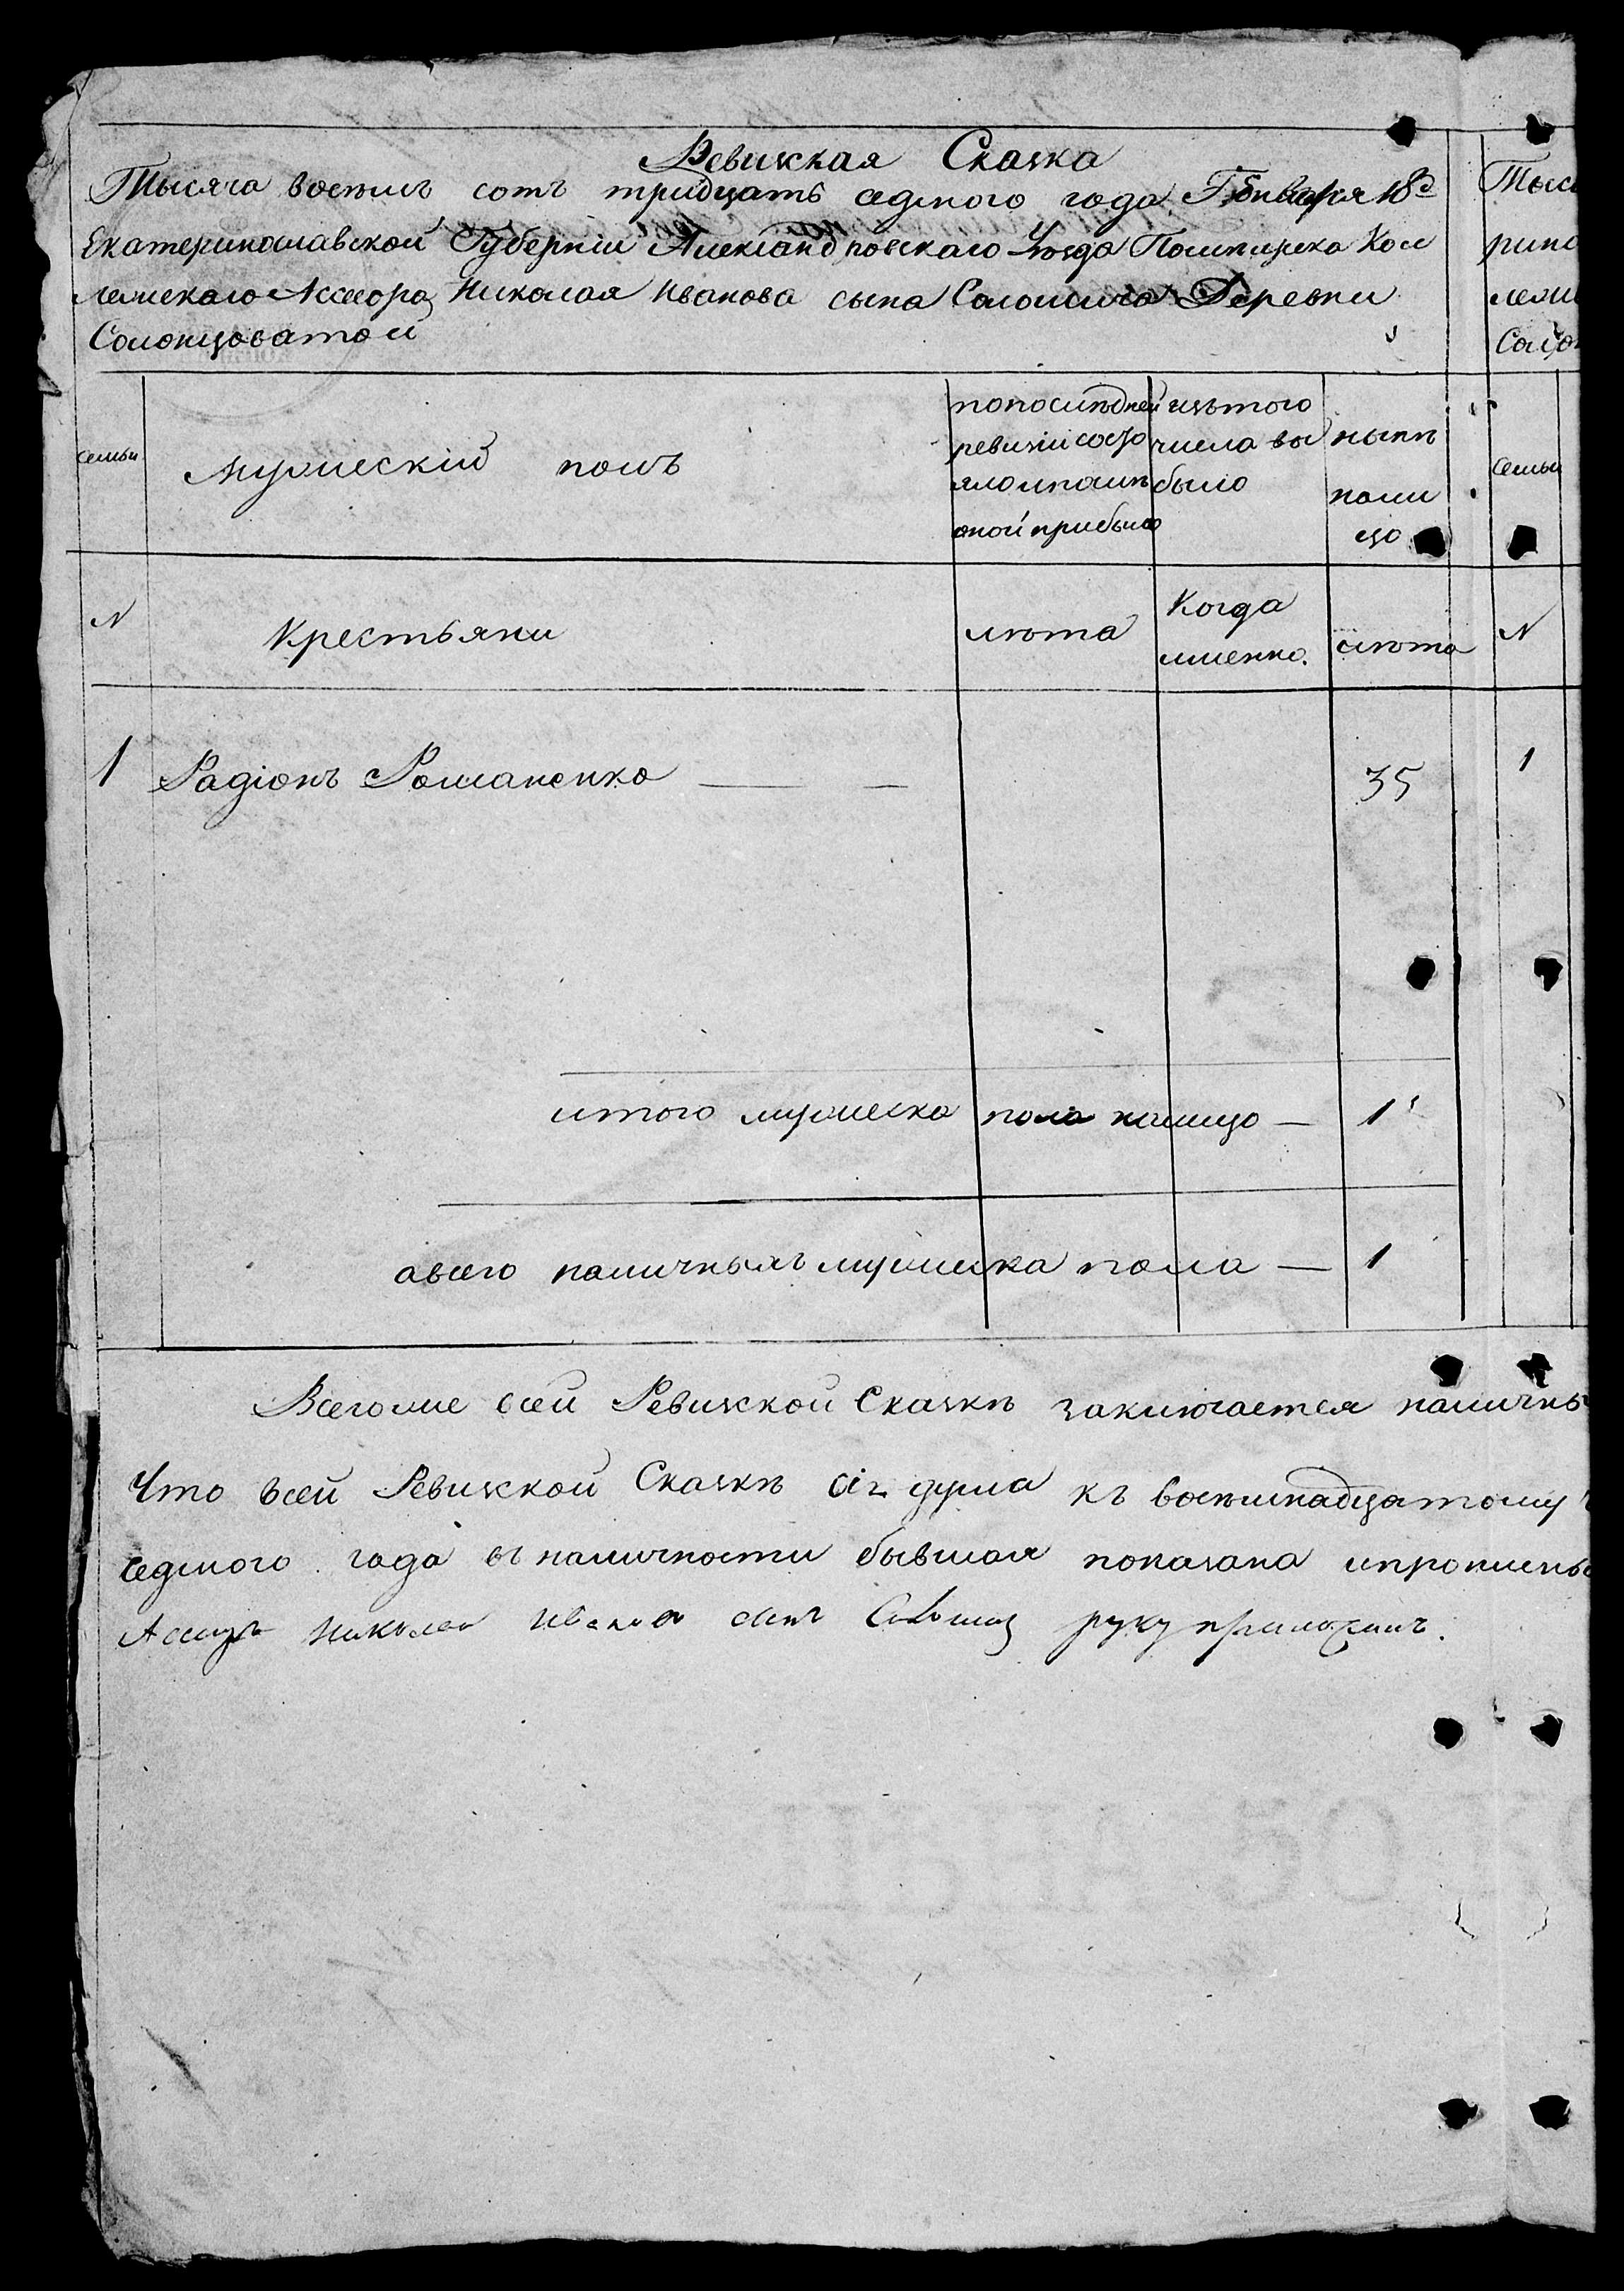 Ревизкая Сказка
Тысяча восемь сотъ тридцать седмого года Генваря 18д
Екатеринославской Губерніи Александровскаго Уезда Помещика Кол
лежскаго Ассесора Николая Иванова сына Деревни
Солонцоватой
семьи
мужескій полъ
попоследней
ревизіи состо
яло ипосле
оной прибыло
изътого
числа вы
было
ныне
нали
цо
N
Крестьяни
лета
Когда
именно.
лета
1 Радіонъ Романенко — — 35
итого мужеска пола налицо — 1
авсего наличныхъ мужеска пола — 1
Всегоже всей Ревизской Сказке заключается наличны
Что всей Ревизкой Сказке сія душа къ восемнадцатому
седмого года въ наличности бывшая показана ипрописны
Николай Иванов сынъ руку приложилъ.
Тыс
рино
леж
Сол
семьи
N
1